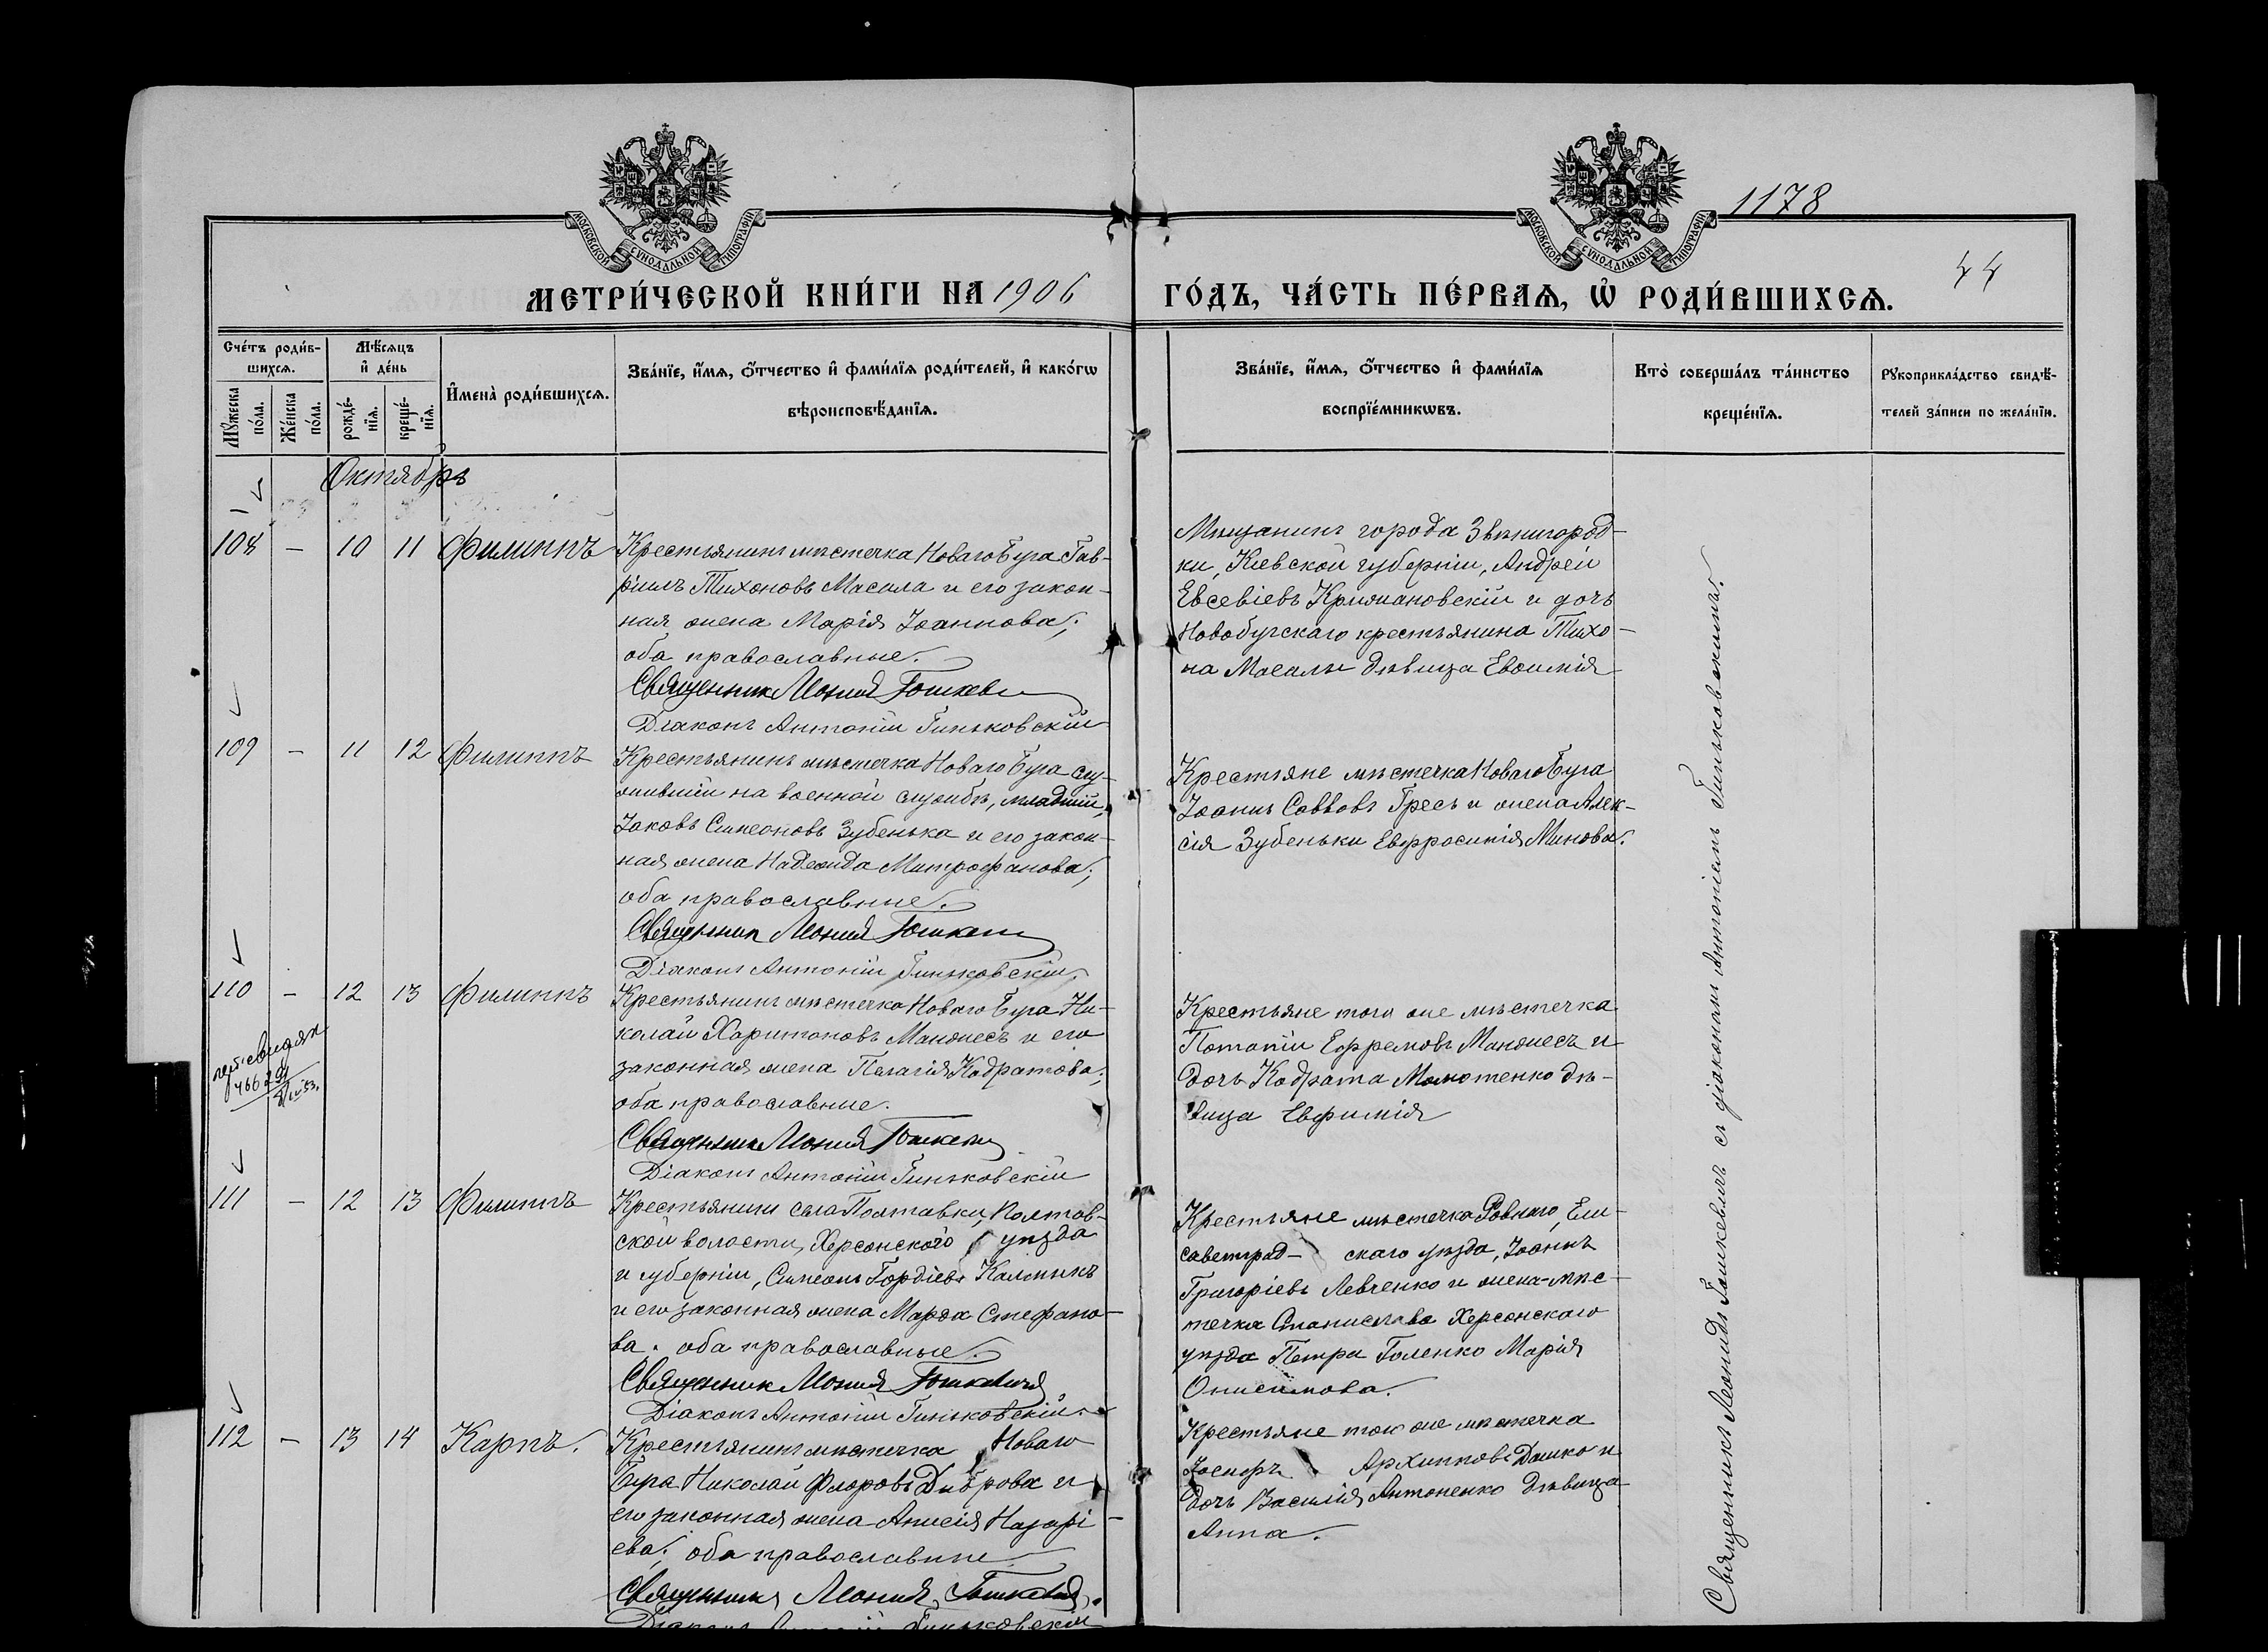 МОСКОВСКОЙ СѴНОДАЛЬНОЙ ТИПОГРАФІИ
МОСКОВСКОЙ СѴНОДАЛЬНОЙ ТИПОГРАФІИ
1178
44
МЕТРИ́ЧЕСКОЙ КНИ́ГИ НА 1906
ГО́ДЪ, ЧА́СТЬ ПЕ́РВАѦ, Ѽ РОДИ́ВШИХСѦ.
Сче́тъ роди́в-
шихсѧ.
Мѣ́сѧцъ
и҆ де́нь
Мꙋ́жеска
по́ла.
Же́нска
по́ла.
рожде́-
нїѧ.
креще́-
нїѧ.
И҆мена̀ роди́вшихсѧ.
Зва́нїе, и҆́мѧ, ѻ҆́тчество и҆ фами́лїѧ роди́телей, и҆ како́гѡ
вѣроисповѣ́данїѧ.
Зва́нїе, и҆́мѧ, ѻ҆́тчество и҆ фами́лїѧ
воспрїе́мникѡвъ.
Кто̀ соверша́лъ та́инство
креще́нїѧ.
Рꙋкоприкла́дство свидѣ́-
телей за́писи по жела́нїю.
Октябрь
108 — 10 11 Филиппъ
Крестьянинъ мѣстечка Новаго Буга Гав-
ріилъ Тихоновъ Масала и его закон-
ная жена Марія Іоаннова;
оба православные.
Священник Леонид Гошкевич
Діаконъ Антоній Гиньковскій
Мѣщанинъ города Звенигород-
ки, Кіевской губерніи, Андрей
Евсевіевъ Крижановскій и дочь
Новобугскаго крестьянина Тихо-
на Масалы дѣвица Евѳимія
109 — 11 12 Филиппъ
Крестьянинъ мѣстечка Новаго Буга слу-
жившій на военной службѣ, младшій,
Іаковъ Симеоновъ Зубенька и его закон-
ная жена Надежда Митрофанова;
оба православные.
Священник Леонид Гошкевич
Діаконъ Антоній Гиньковскій.
Крестьяне мѣстечка Новаго Буга
Іоаннъ Савовъ Гресь и жена Алек-
сія Зубеньки Евфросинія Минова.
110 — 12 13 Филиппъ
4662
Крестьянинъ мѣстечка Новаго Буга Ни-
колай Харитоновъ Манжесъ и его
законная жена Пелагія Кодратова;
оба православные.
Священник Леонид Гошкевич
Діаконъ Антоній Гиньковскій
Крестьяне того же мѣстечка
Потапій Ефремовъ Манжесъ и
дочь Кодрата дѣ-
вица Евфимія
111 — 12 13 Филиппъ
Крестьянинъ села Полтавки, Полтав-
ской волости, Херсонского уѣзда
и губерніи, Симеонъ Гордіевъ Калмыкъ
и его законная жена Марѳа Стефано-
ва. оба православные.
Священник Леонид Гошкевич
Діаконъ Антоній Гиньковскій.
Крестьяне мѣстечка Ровнаго, Ели-
саветград- скаго уѣзда, Іоаннъ
Григоріевъ Левченко и жена мѣс-
течка Станислава Херсонскаго
уѣзда Петра Голенко Марія
Онисимова.
112 — 13 14 Карпъ.
Крестьянинъ мѣстечка Новаго
Буга Николай Флоровъ Диброва и
его законная жена Анисія Назарі-
ева; оба православные
Священник Леонид Гошкевич.
Діаконъ Антоній Гиньковскій
Крестьяне того же мѣстечка
Іосифъ Архиповъ Дашко и
дочь Василія Антоненко дѣвица
Анна.
Священникъ Леонидъ Гошкевичъ съ діакономъ Антоніемъ Гиньковскимъ.